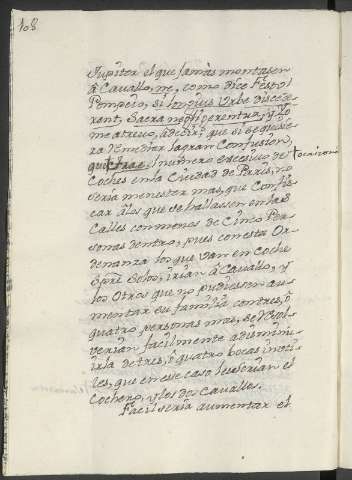 108
Jupiter el que jamàs montasen
à Cavallo, ne, como dice Festo
Pompeio, si longius Urbe discede
rent, Sacra negligerentur, y Yo
me atrevo, à decir, que si se quisie
ra remediar la gran Confusion,
que trae el numero excesivo de † ocasiona
Coches en la Ciudad de Paris, no
seria menester mas, que Confis
car à los que se hallasen en las
Calles con menos de Cinco Per
sonas dentro, pues con esta Or
denanza los que van en Coche
Solos, irian à Cavallo, y
los Otros que no pudiesen au
mentar su familia con tres, ò
quatro personas mas, se resol
verian facilmente à disminu
irla de tres, ò quatro bocas inuti
les, que en ese caso les serian el
Cochero, y los dos Cavallos.
Facil seria aumentar el